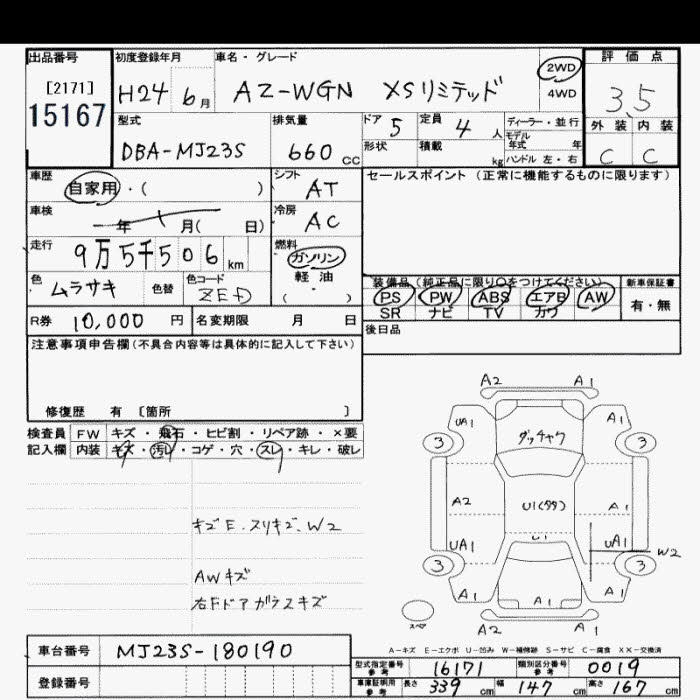 出品番号
[2171]
15167
初度登録年月
H24 6月
車名・グレード
AZ-WGN XSリミテッド
2WD
4WD
評価点
3.5
外装 内装
C C
型式
DBA-MJ23S
排気量
660 CC
ドア 5
定員 4 人
形状
積載 kg
ディーラー・並行
モデル年式 年
ハンドル 左・右
車歴
自家用・( )
シフト
AT
セールスポイント (正常に機能するものに限ります)
車検
年 月( 日)
冷房
AC
走行
9万5千506km
燃料
ガソリン
軽油
( )
色
ムラサキ
色替
色コード
ZED
装備品 (純正品に限り○をつけてください)
PS PW ABS エアB AW
SR ナビ TV カワ
新車保証書
有・無
R券 10,000 円
名変期限 月 日
後日品
注意事項申告欄(不具合内容等は具体的に記入して下さい)
修復歴 有 [箇所 ]
検査員記入欄
FW キズ・飛石・ヒビ割・リペア跡・×要
内装 キズ・汚レ・コゲ・穴・スレ・キレ・破レ
キズE.スリキズ、W2
AWキズ
右Fドアガラスキズ
A2 A1
UA1 A1
3 ダッチャク 3
A2 U1(タタ) A1
UA1 U1 UA1 W2
3 3
A1 A1 A1
スペア
A2 A1
A-キズ E-エクボ U-凹み W-補修跡 S-サビ C-腐食 XX-交換済
車台番号 MJ23S-180190
登録番号
型式指定番号 参考 16171
類別区分番号 参考 0019
車庫証明用 参考 長さ 339 cm 幅 147 cm 高さ 167 cm